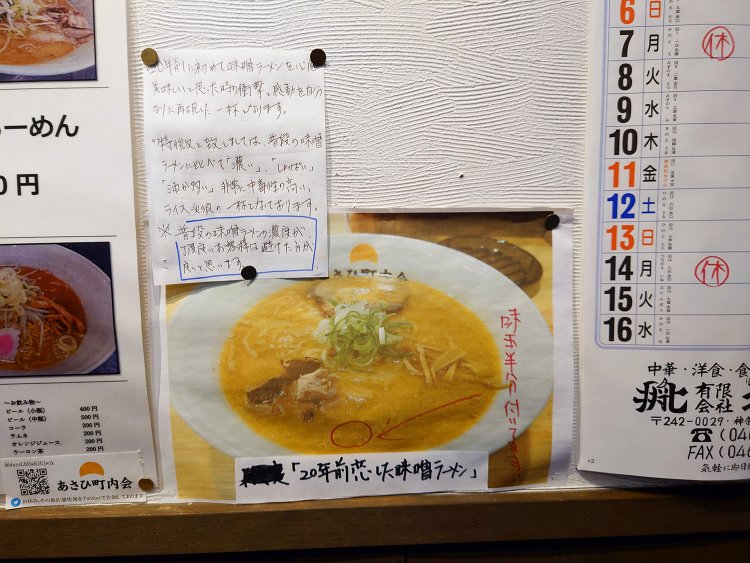 らーめん
0円
～お飲み物～
ビール（小瓶） 400円
ビール（中瓶） 500円
コーラ 200円
ラムネ 200円
オレンジジュース 200円
ウーロン茶 200円
あさひ町内会
お休み、その他店舗情報をTwitterで告知しております
20年前に初めて味噌ラーメンを心底
美味しいと思った時の衝撃、感動を自分
なりに再現した一杯になります。
特徴と致しましては、普段の味噌
ラーメンに比べて「濃い」、「しょっぱい」
「油が多い」非常に中毒性の高い、
ライス必須の一杯となっております。
※普段の味噌ラーメンの濃度が
丁度良いお客様は避けた方が
良いと思います
あさひ町内会
味玉半分付いてます
「20年前恋した味噌ラーメン」
6 日
7 月 休
8 火
9 水
10 木
11 金
12 土
13 日
14 月 休
15 火
16 水
中華・洋食・食
有限会社
〒242-0029・神奈
☎(046
FAX(046
気軽に即日